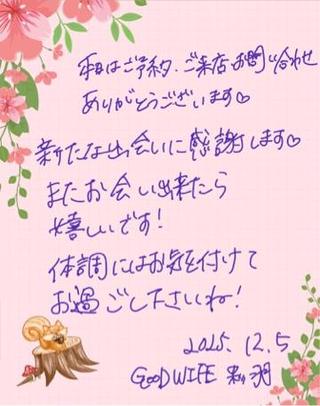 本日はご予約、ご来店、お問い合わせ
ありがとうございます♡
新たな出会いに感謝します♡
またお会い出来たら
嬉しいです!
体調にはお気を付けて
お過ごし下さいね!
2025.12.5
GOODWIFE 新羽